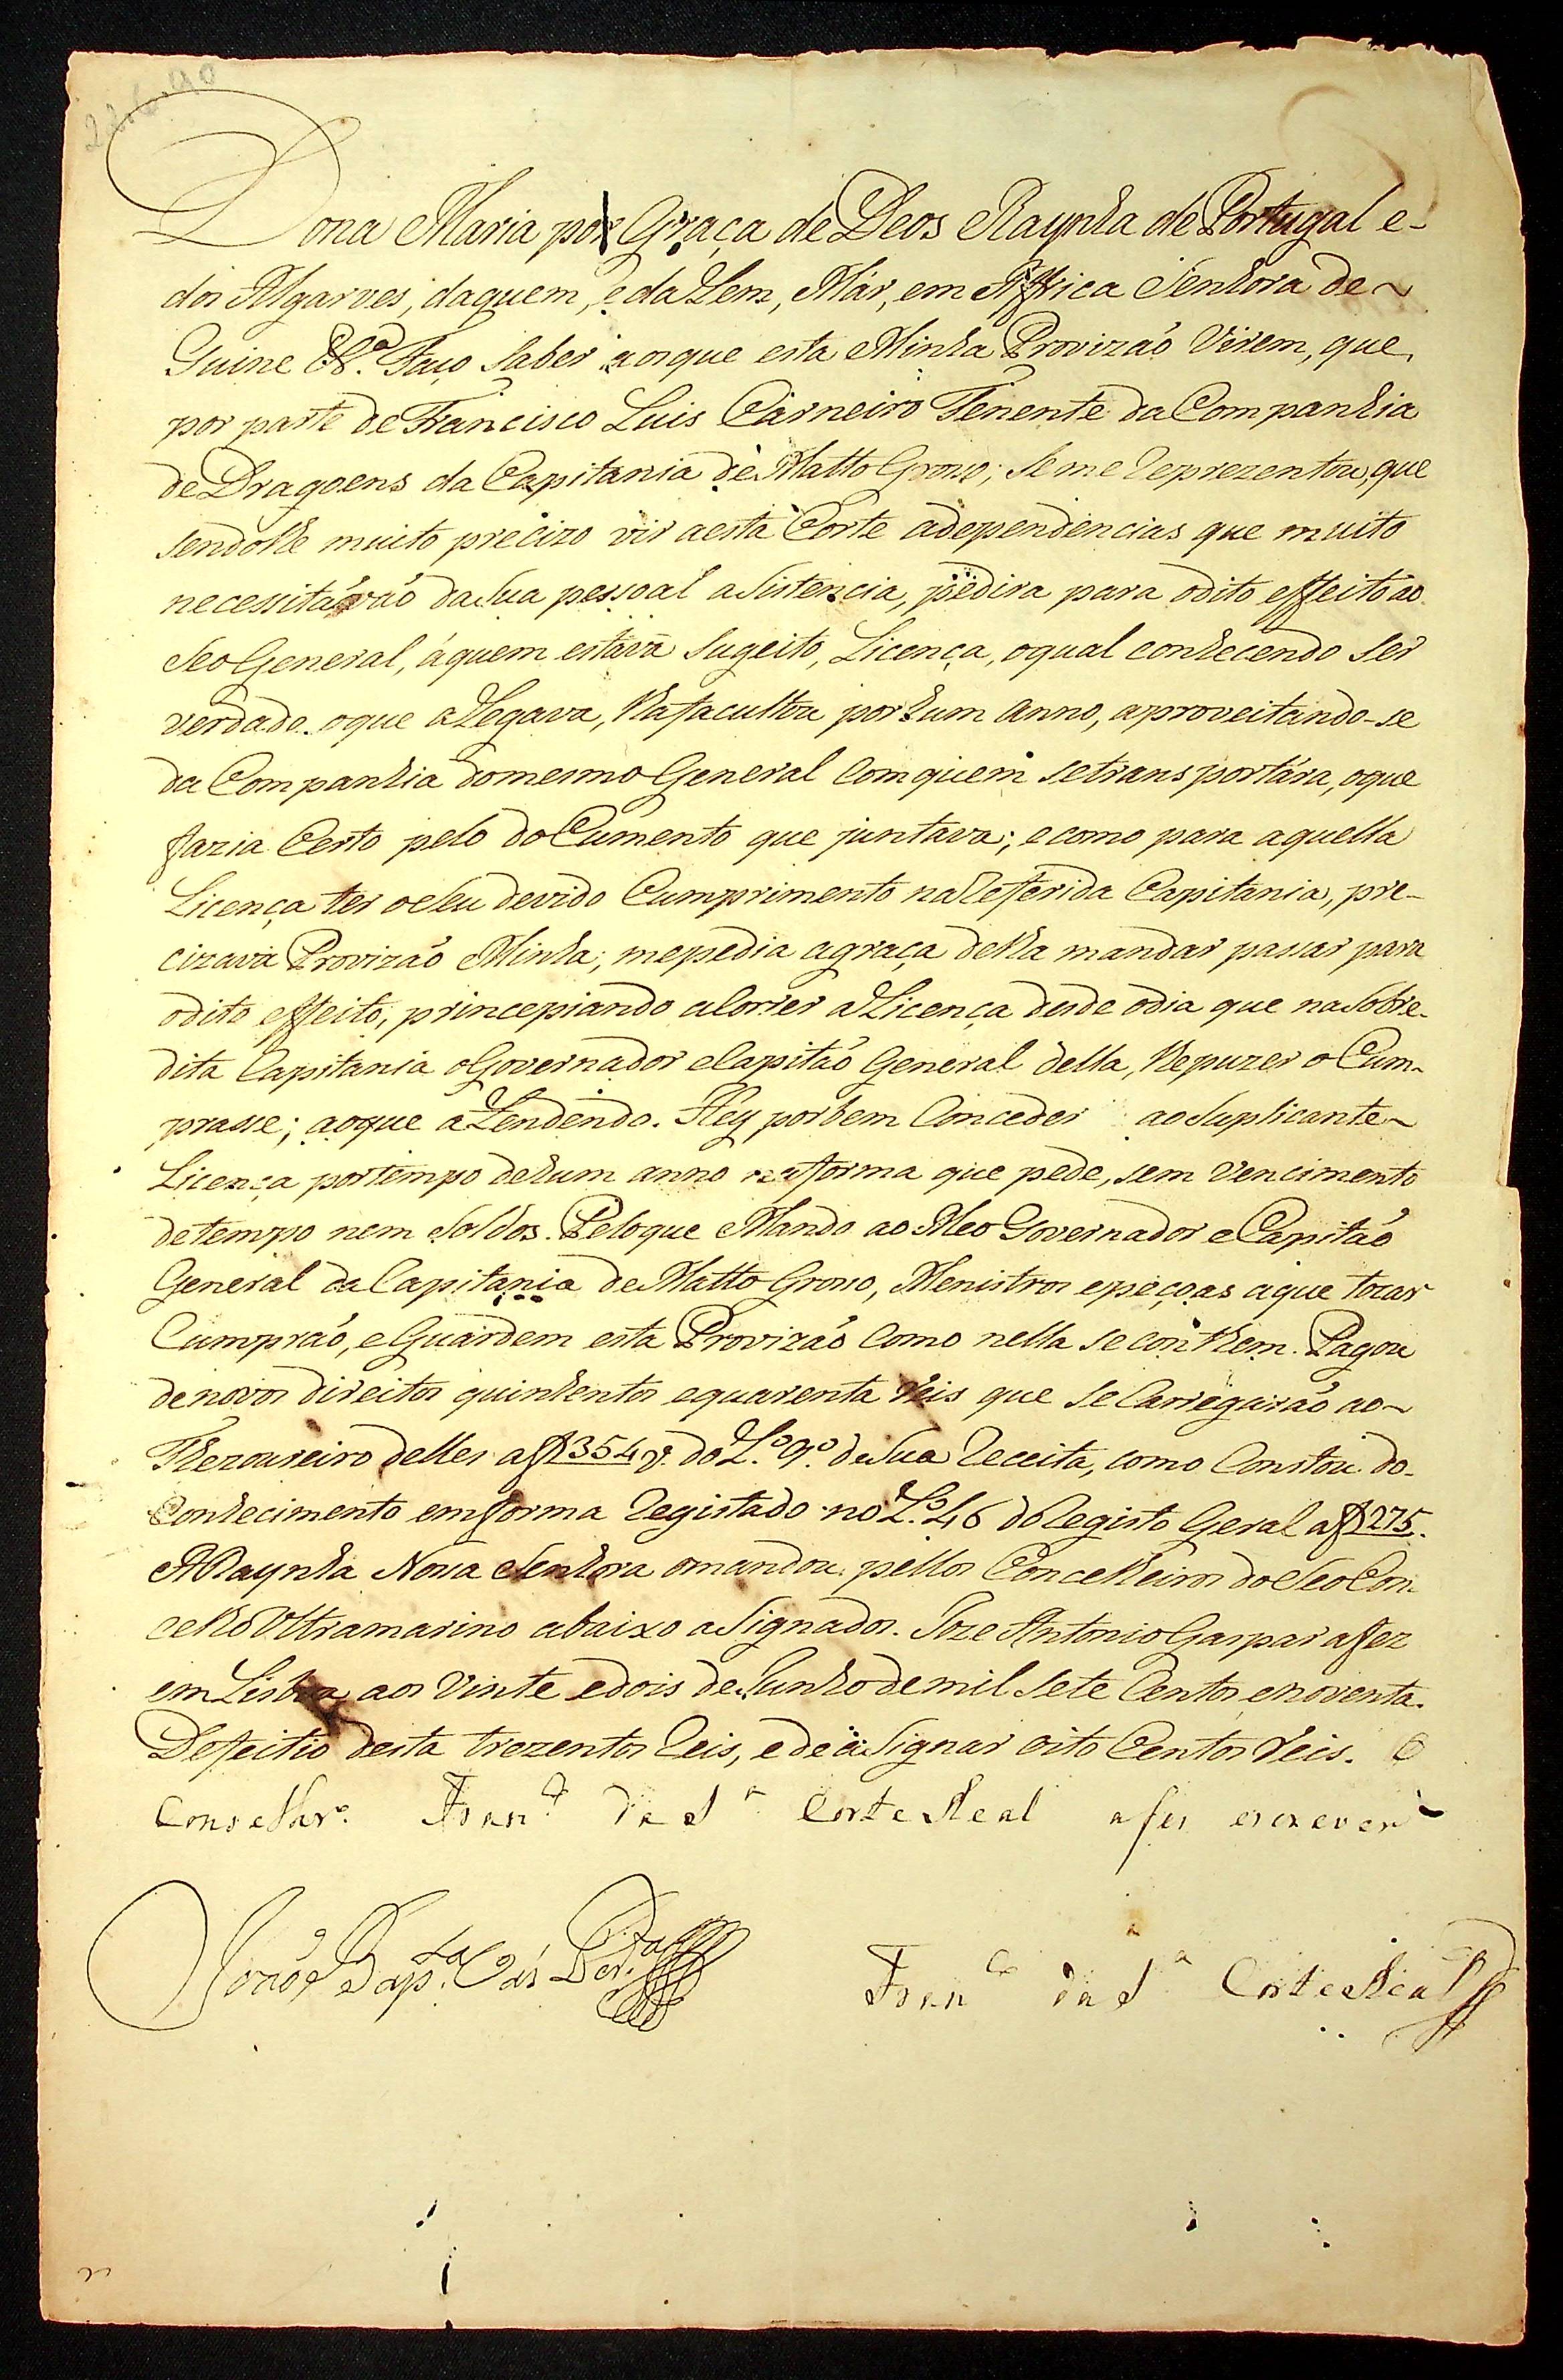 22.6.90
Dona Maria por Graça de Deos Raynha de Portugal e-
dos Algarves, daquem, e daLem, Már, em Affrica Senhora de~
Guine &ª. Faço saber aosque esta Minha Provizaõ virem, que,
por parte de Francisco Luis Carneiro Tenente da Companhia
de Dragoens da Capitania de Matto Grosso; se me reprezentou, que
sendolhe muito precizo vir aesta Corte adependencias que muito
necessitávaõ da sua pessoal asistencia, pedira para odito effeito ao
seo General, áquem estava sugeito, Licença, oqual conhecendo ser
verdade oque aLegava, lha facultou por hum anno, aproveitando-se
da Companhia domesmo General com quem setransportára, oque
fazia Certo pelo doCumento que juntava; e como para aquella
Licença ter oseu devido Cumprimento na referida Capitania, pre-
cizava Provizaõ Minha; mepedia agraça delha mandar passar para
odito effeito, principiando aCorrer aLicença desde odia que na Sobre-
dita Capitania oGovernador eCapitaõ General della, lhepuzer o Cum-
prasse; aoque atendendo. Hey por bem Conceder ao Suplicante~
Licença portempo dehum anno na forma que pede, sem vencimento
detempo nem Soldos. Peloque Mando ao Meo Governador e Capitaõ
General da Capitania de Matto Grosso, Menistros epeçoas aque tocar
Cumpraõ, eGuardem esta Provizaõ Como nella se conthem. Pagou
denovos direitos quinhentos equarenta reis que se Carregaraõ ao~
Thezoureiro delles af 354 v. do L.º 9.º de Sua receita, como Constou do-
Conhecimento emforma registado no L.º 46 do registo Geral af 275.
ARaynha Nossa Senhora omandou pellos Concelheiros do Seo Con-
celho Ultramarino abaixo aSignados. Joze Antonio Gaspar afez
em Lisboa aos vinte edois de Junho de mil sete Centos enoventa.
Defeitio desta trezentos reis, e de aSignar oito Centos reis. O
Conselhr.º Fran.co da S.ª Corte Real a fes escrever
João Bap.ta Vás Per.ª
Fran.co da S.ª Corte Real